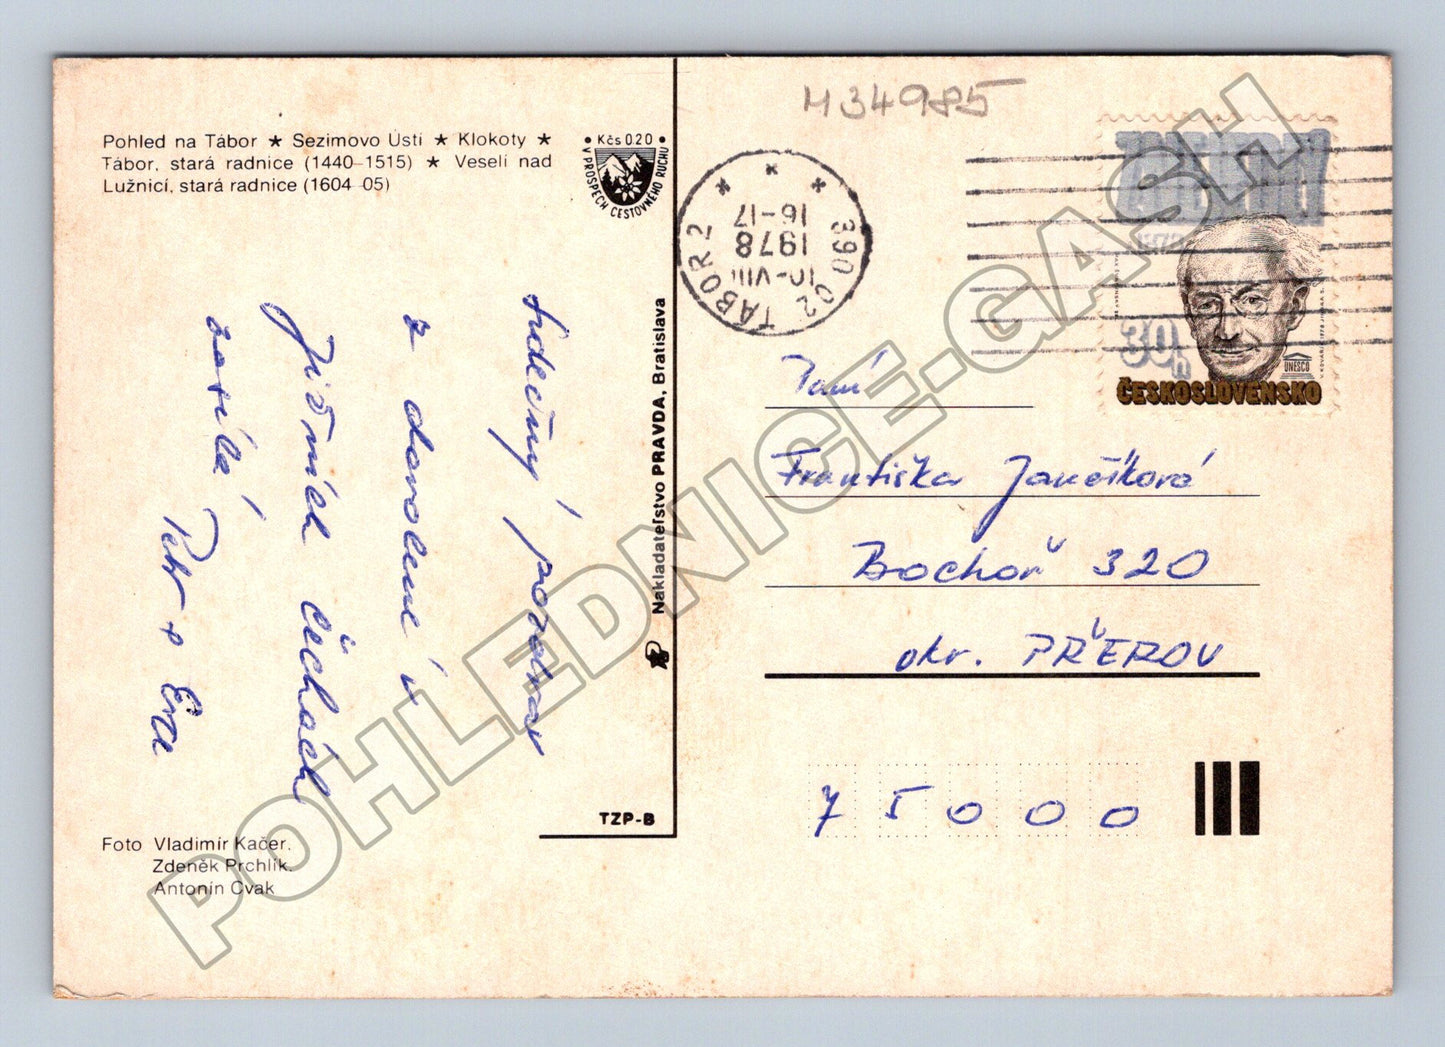 M34985
Pohled na Tábor ★ Sezimovo Ústí ★ Klokoty ★
Tábor, stará radnice (1440–1515) ★ Veselí nad
Lužnicí, stará radnice (1604–05)
• Kčs 0.20 •
V PROSPĚCH CESTOVNÉHO RUCHU
390 02 TÁBOR 2
10-VIII
1978
16-17
30h
UNESCO
ČESKOSLOVENSKO
Srdečný pozdrav
z dovolené v
Jižních Čechách
zasílá
Petr + Eva
Nakladateľstvo PRAVDA, Bratislava
Paní
Františka Jančíková
Bochoř 320
okr. PŘEROV
75000
TZP-B
Foto Vladimír Kačer,
Zdeněk Prchlík,
Antonín Cvak
POHLEDNICE-GASH